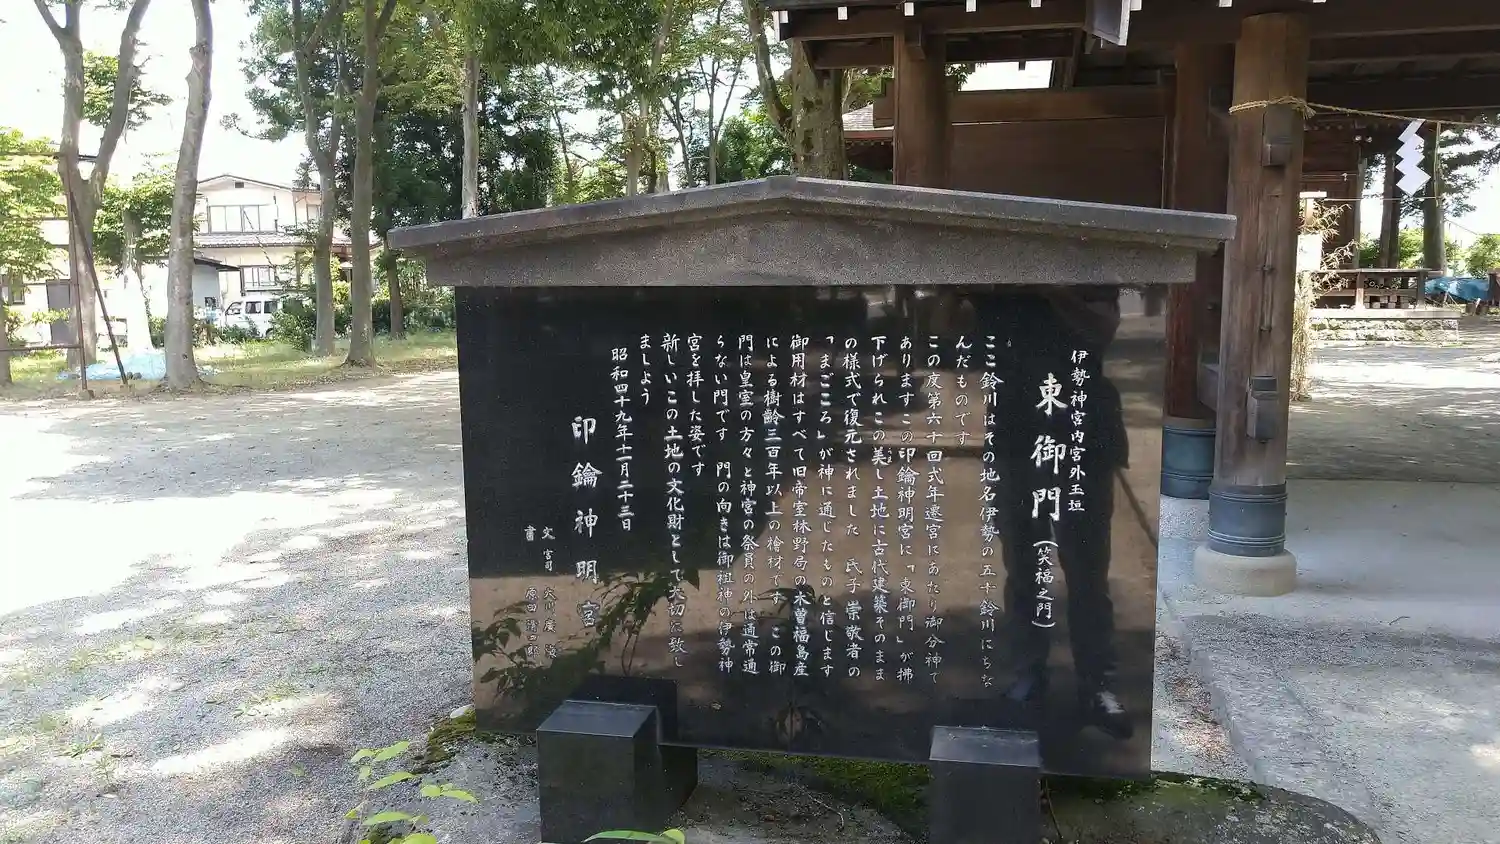 伊勢神宮内宮外玉垣
東御門(笑福之門)
ここ鈴川はその地名伊勢の五十鈴川にちな
んだものです
この度第六十回式年遷宮にあたり御分神で
ありますこの印鑰神明宮に「東御門」が拂
下げられこの美し土地に古代建築そのまま
の様式で復元されました 氏子崇敬者の
「まごころ」が神に通じたものと信じます
御用材はすべて旧帝室林野局の木曽福島産
による樹齢三百年以上の檜材です この御
門は皇室の方々と神宮の祭員の外は通常通
らない門です 門の向きは御祖神の伊勢神
宮を拝した姿です
新しいこの土地の文化財として大切に致し
ましよう
昭和四十九年十一月二十三日
印鑰神明宮
文 宮司
書 原田